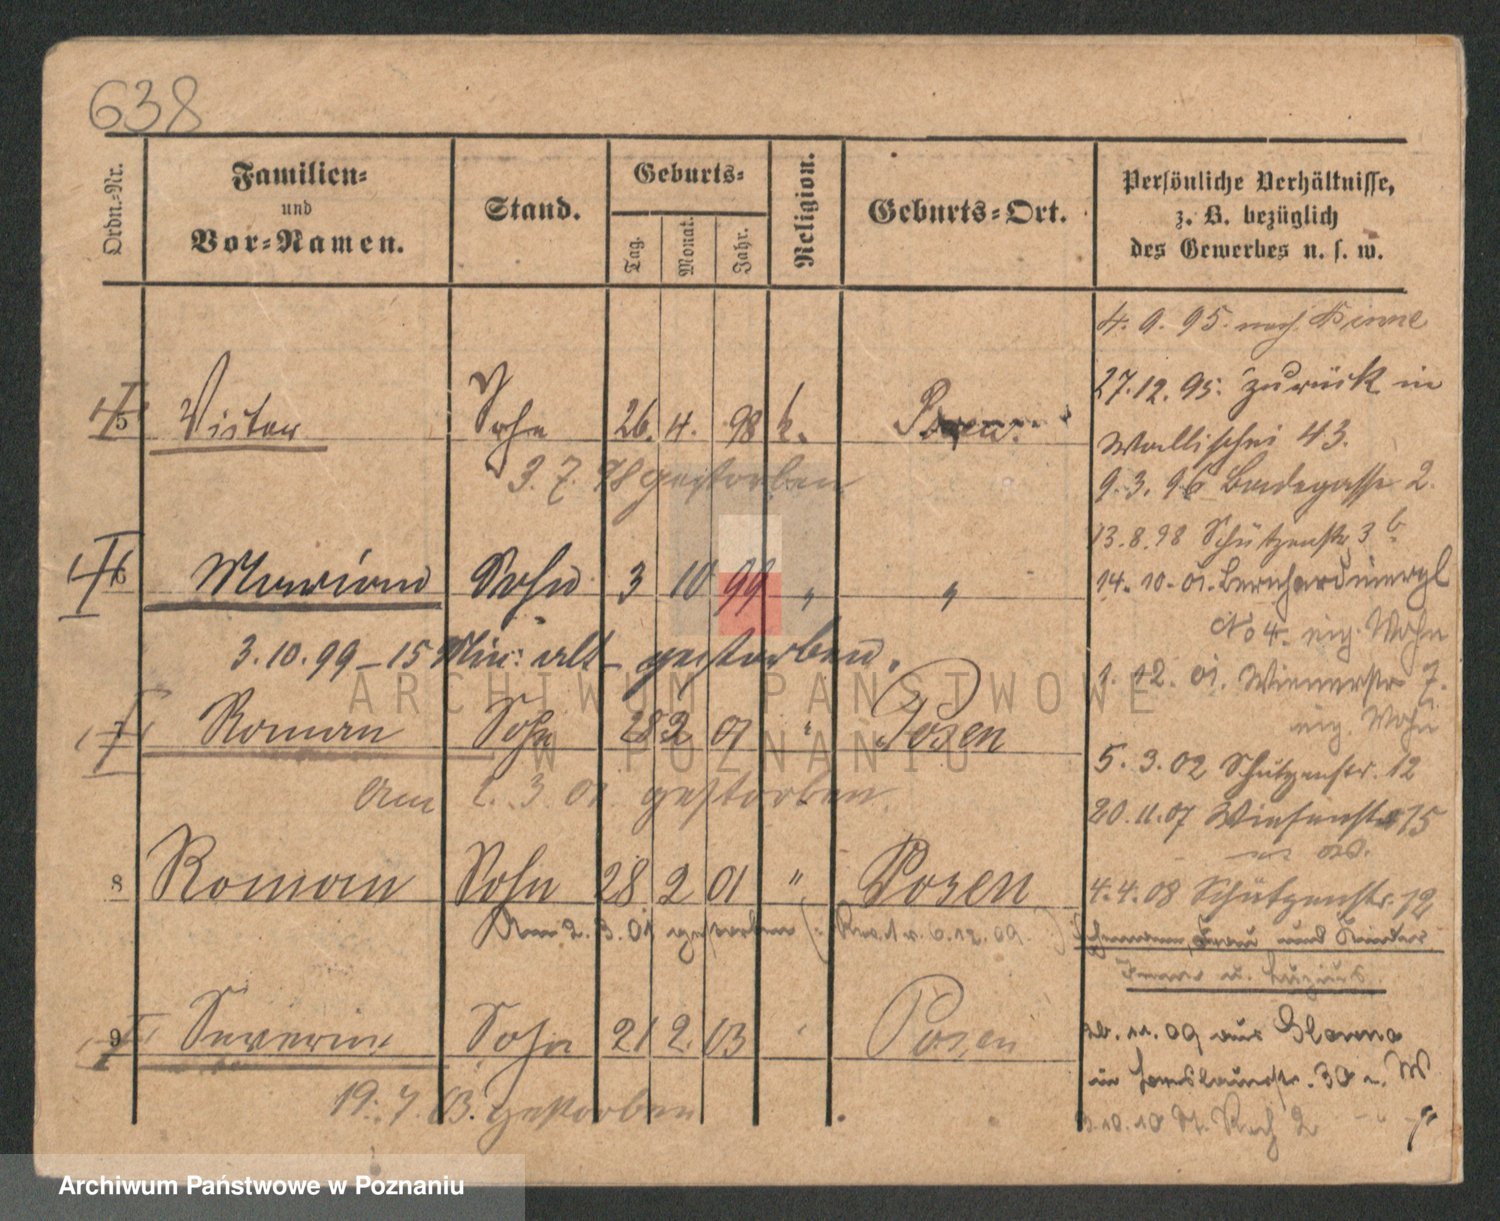 638
Ordn.-Nr.
Familien-
und
Vor-Namen.
Stand.
Geburts-
Tag.
Monat.
Jahr.
Religion.
Geburts-Ort.
Persönliche Verhältnisse,
z. B. bezüglich
des Gewerbes u. s. w.
4. 9. 95. nach
27.12.95. zurück in
Wallischei 43.
9.3.96 Badegasse 2.
13.8.98 Schützenstr 3 b
14. 10. 01. Bernhardinerpl
No 4. eig. Wohn
1. 12. 01. Wienerstr 7.
eig. Wohn
5. 3. 02 Schützenstr. 12
20.11.07 Wiesenstr 15
4.4.08 Schützenstr. 12
Ehemann, Frau und Kinder
11.09 aus
in 30 W
3.10.10 St. Roch 2
5 Victor Sohn 26. 4. 98 k. Posen.
3. 7. 98 gestorben
6 Marian Sohn 3 10 99 " "
3.10.99 – 15 Min: alt – gestorben.
7 Roman Sohn 28 2 01 " Posen
Am 2. 3. 01. gestorben.
8 Roman Sohn 28 2 01 " Posen
Am 2. 3. 01 gestorben
9 Severin Sohn 21 2. 03 Posen
19. 7. 03. gestorben
ARCHIWUM PAŃSTWOWE
W POZNANIU
Archiwum Państwowe w Poznaniu